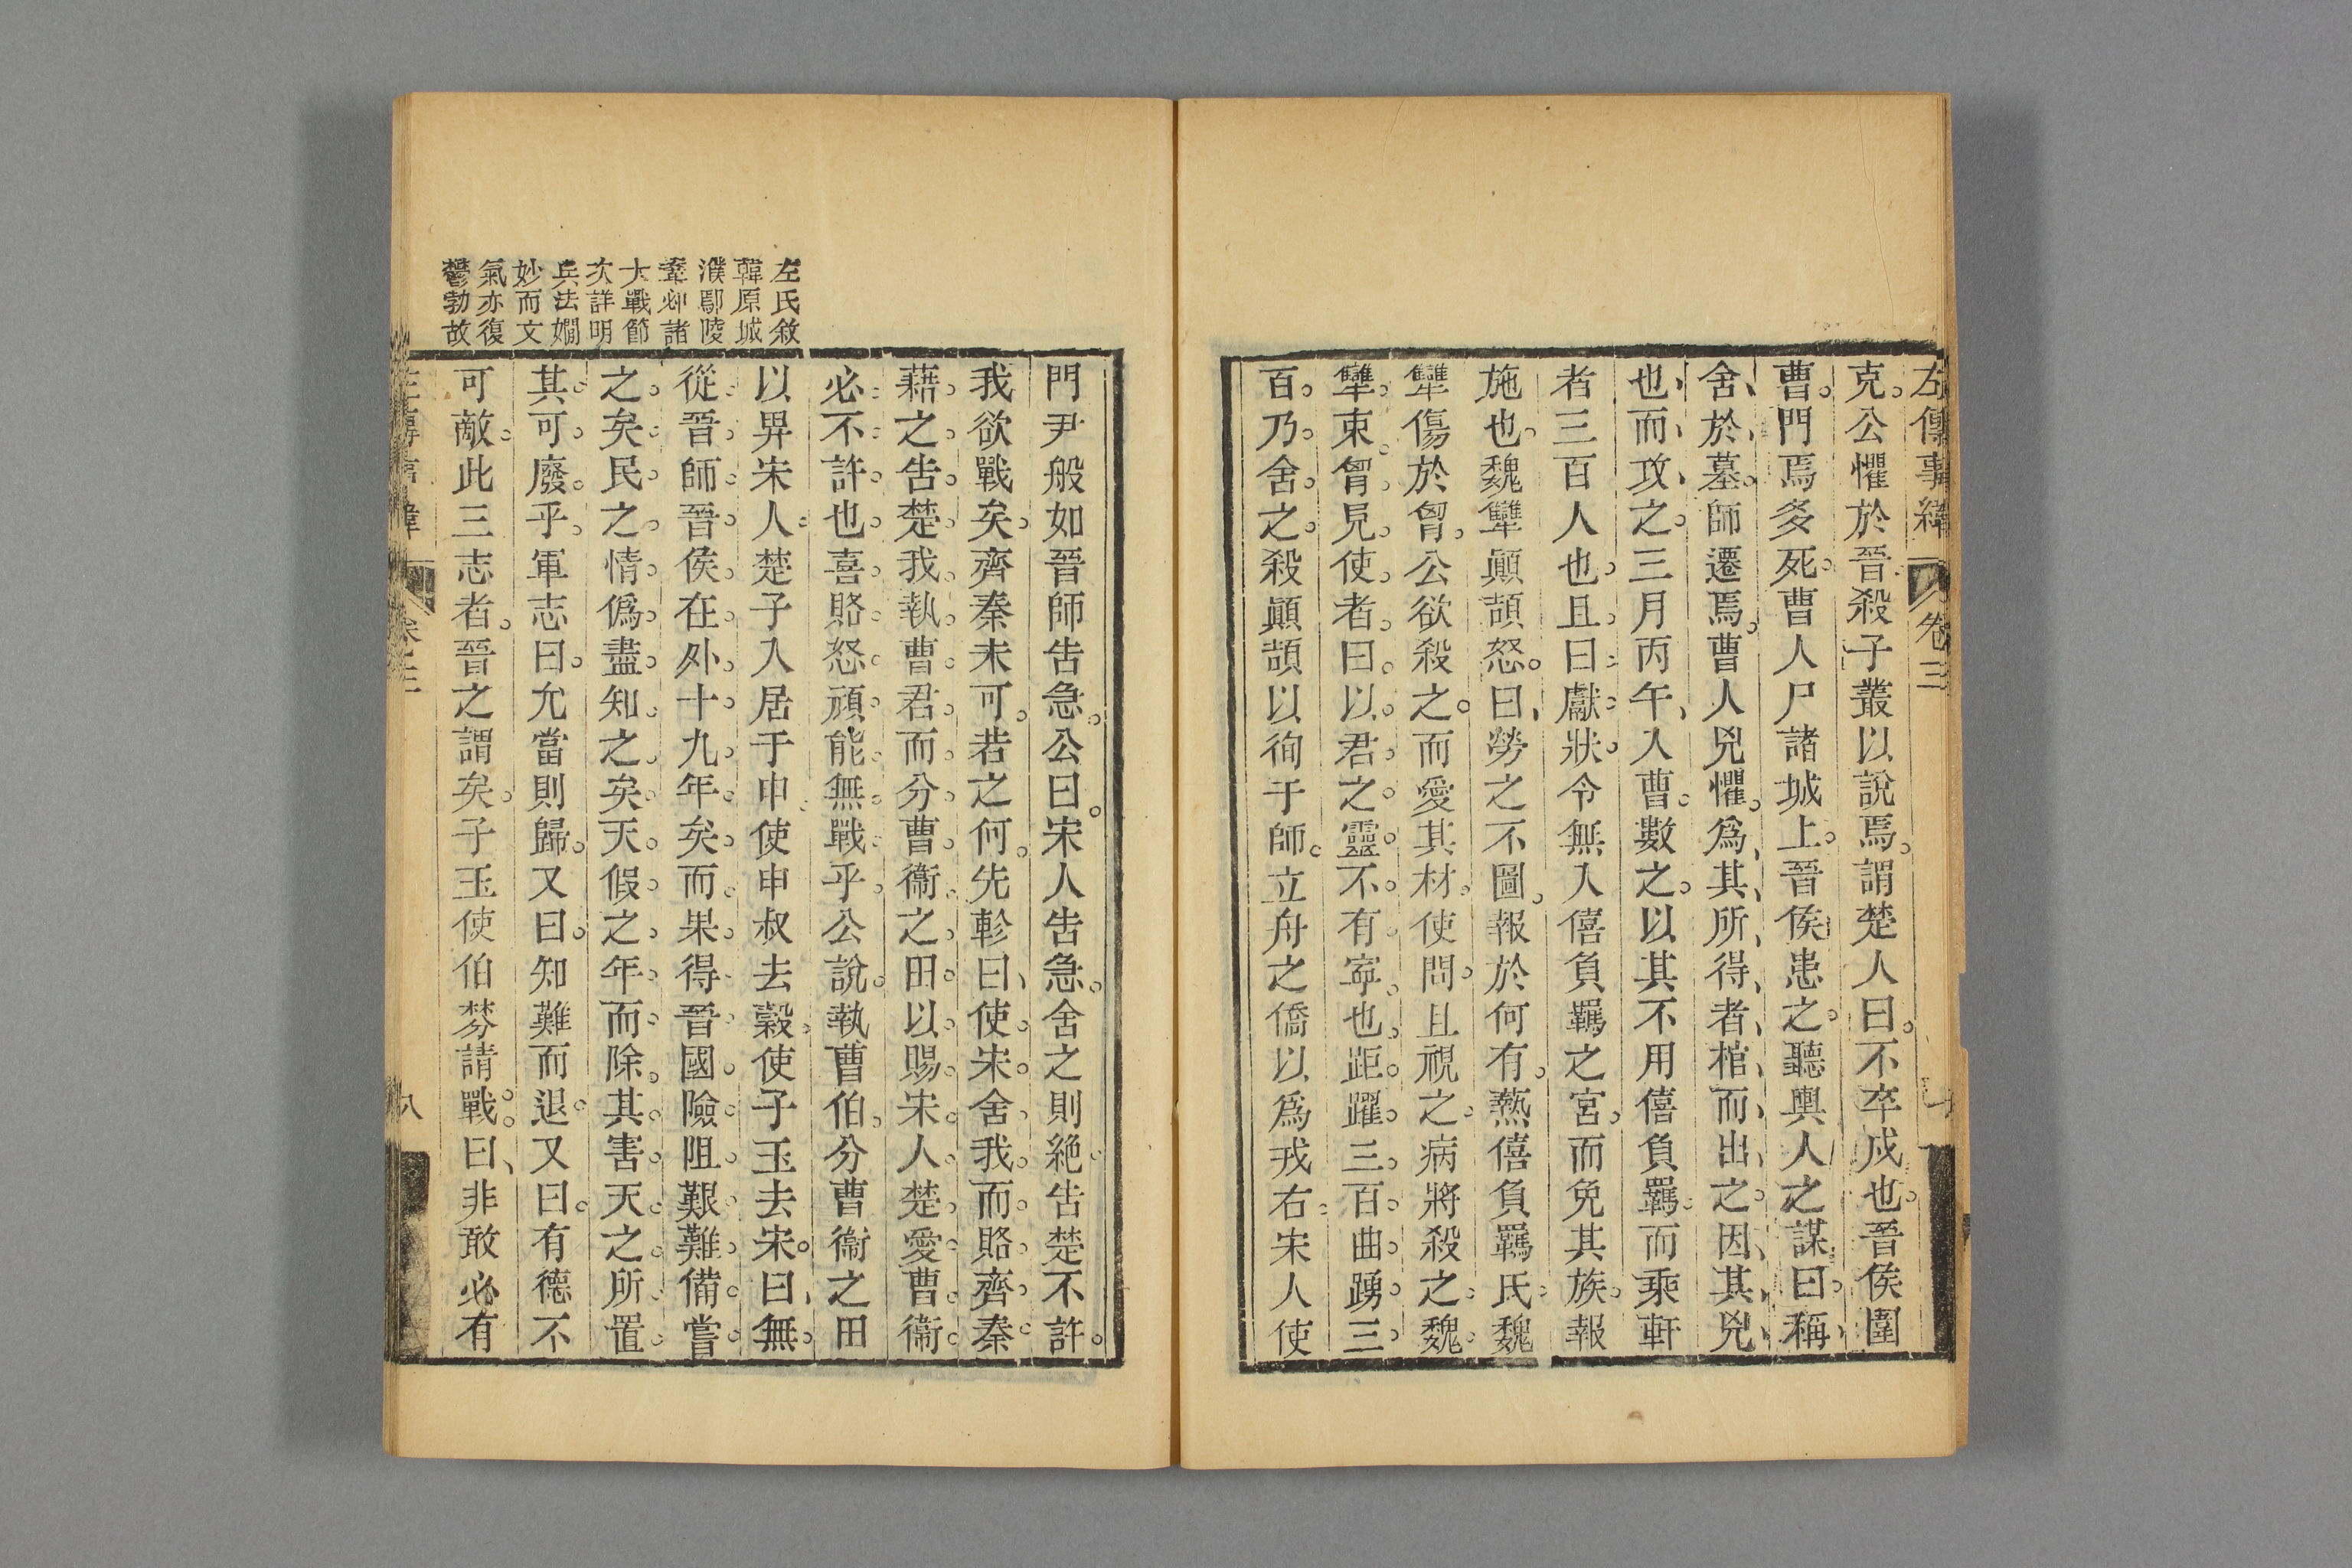 左傳事緯
卷三
克公懼於晉殺子叢以說焉謂楚人曰不卒戍也晉侯圍
曹門焉多死曹人尸諸城上晉侯患之聽輿人之謀曰稱
舍於墓師遷焉曹人兇懼爲其所得者棺而出之因其兇
也而攻之三月丙午入曹數之以其不用僖負羈而乘軒
者三百人也且曰獻狀令無入僖負羈之宮而免其族報
施也魏犨顚頡怒曰勞之不圖報於何有爇僖負羈氏魏
犨傷於胷公欲殺之而愛其材使問且視之病將殺之魏
犨束胷見使者曰以君之靈不有寧也距躍三百曲踴三
百乃舍之殺顚頡以徇于師立舟之僑以爲戎右宋人使
門尹般如晉師告急公曰宋人告急舍之則絕告楚不許
我欲戰矣齊秦未可若之何先軫曰使宋舍我而賂齊秦
藉之告楚我執曹君而分曹衞之田以賜宋人楚愛曹衞
必不許也喜賂怒頑能無戰乎公說執曹伯分曹衞之田
以畀宋人楚子入居于申使申叔去穀使子玉去宋曰無
從晉師晉侯在外十九年矣而果得晉國險阻艱難備嘗
之矣民之情僞盡知之矣天假之年而除其害天之所置
其可廢乎軍志曰允當則歸又曰知難而退又曰有德不
可敵此三志者晉之謂矣子玉使伯棼請戰曰非敢必有
左氏敘
韓原城
濮鄢陵
鞌邲諸
大戰節
次詳明
兵法嫺
妙而文
氣亦復
鬱勃故
左傳事緯
卷三
八